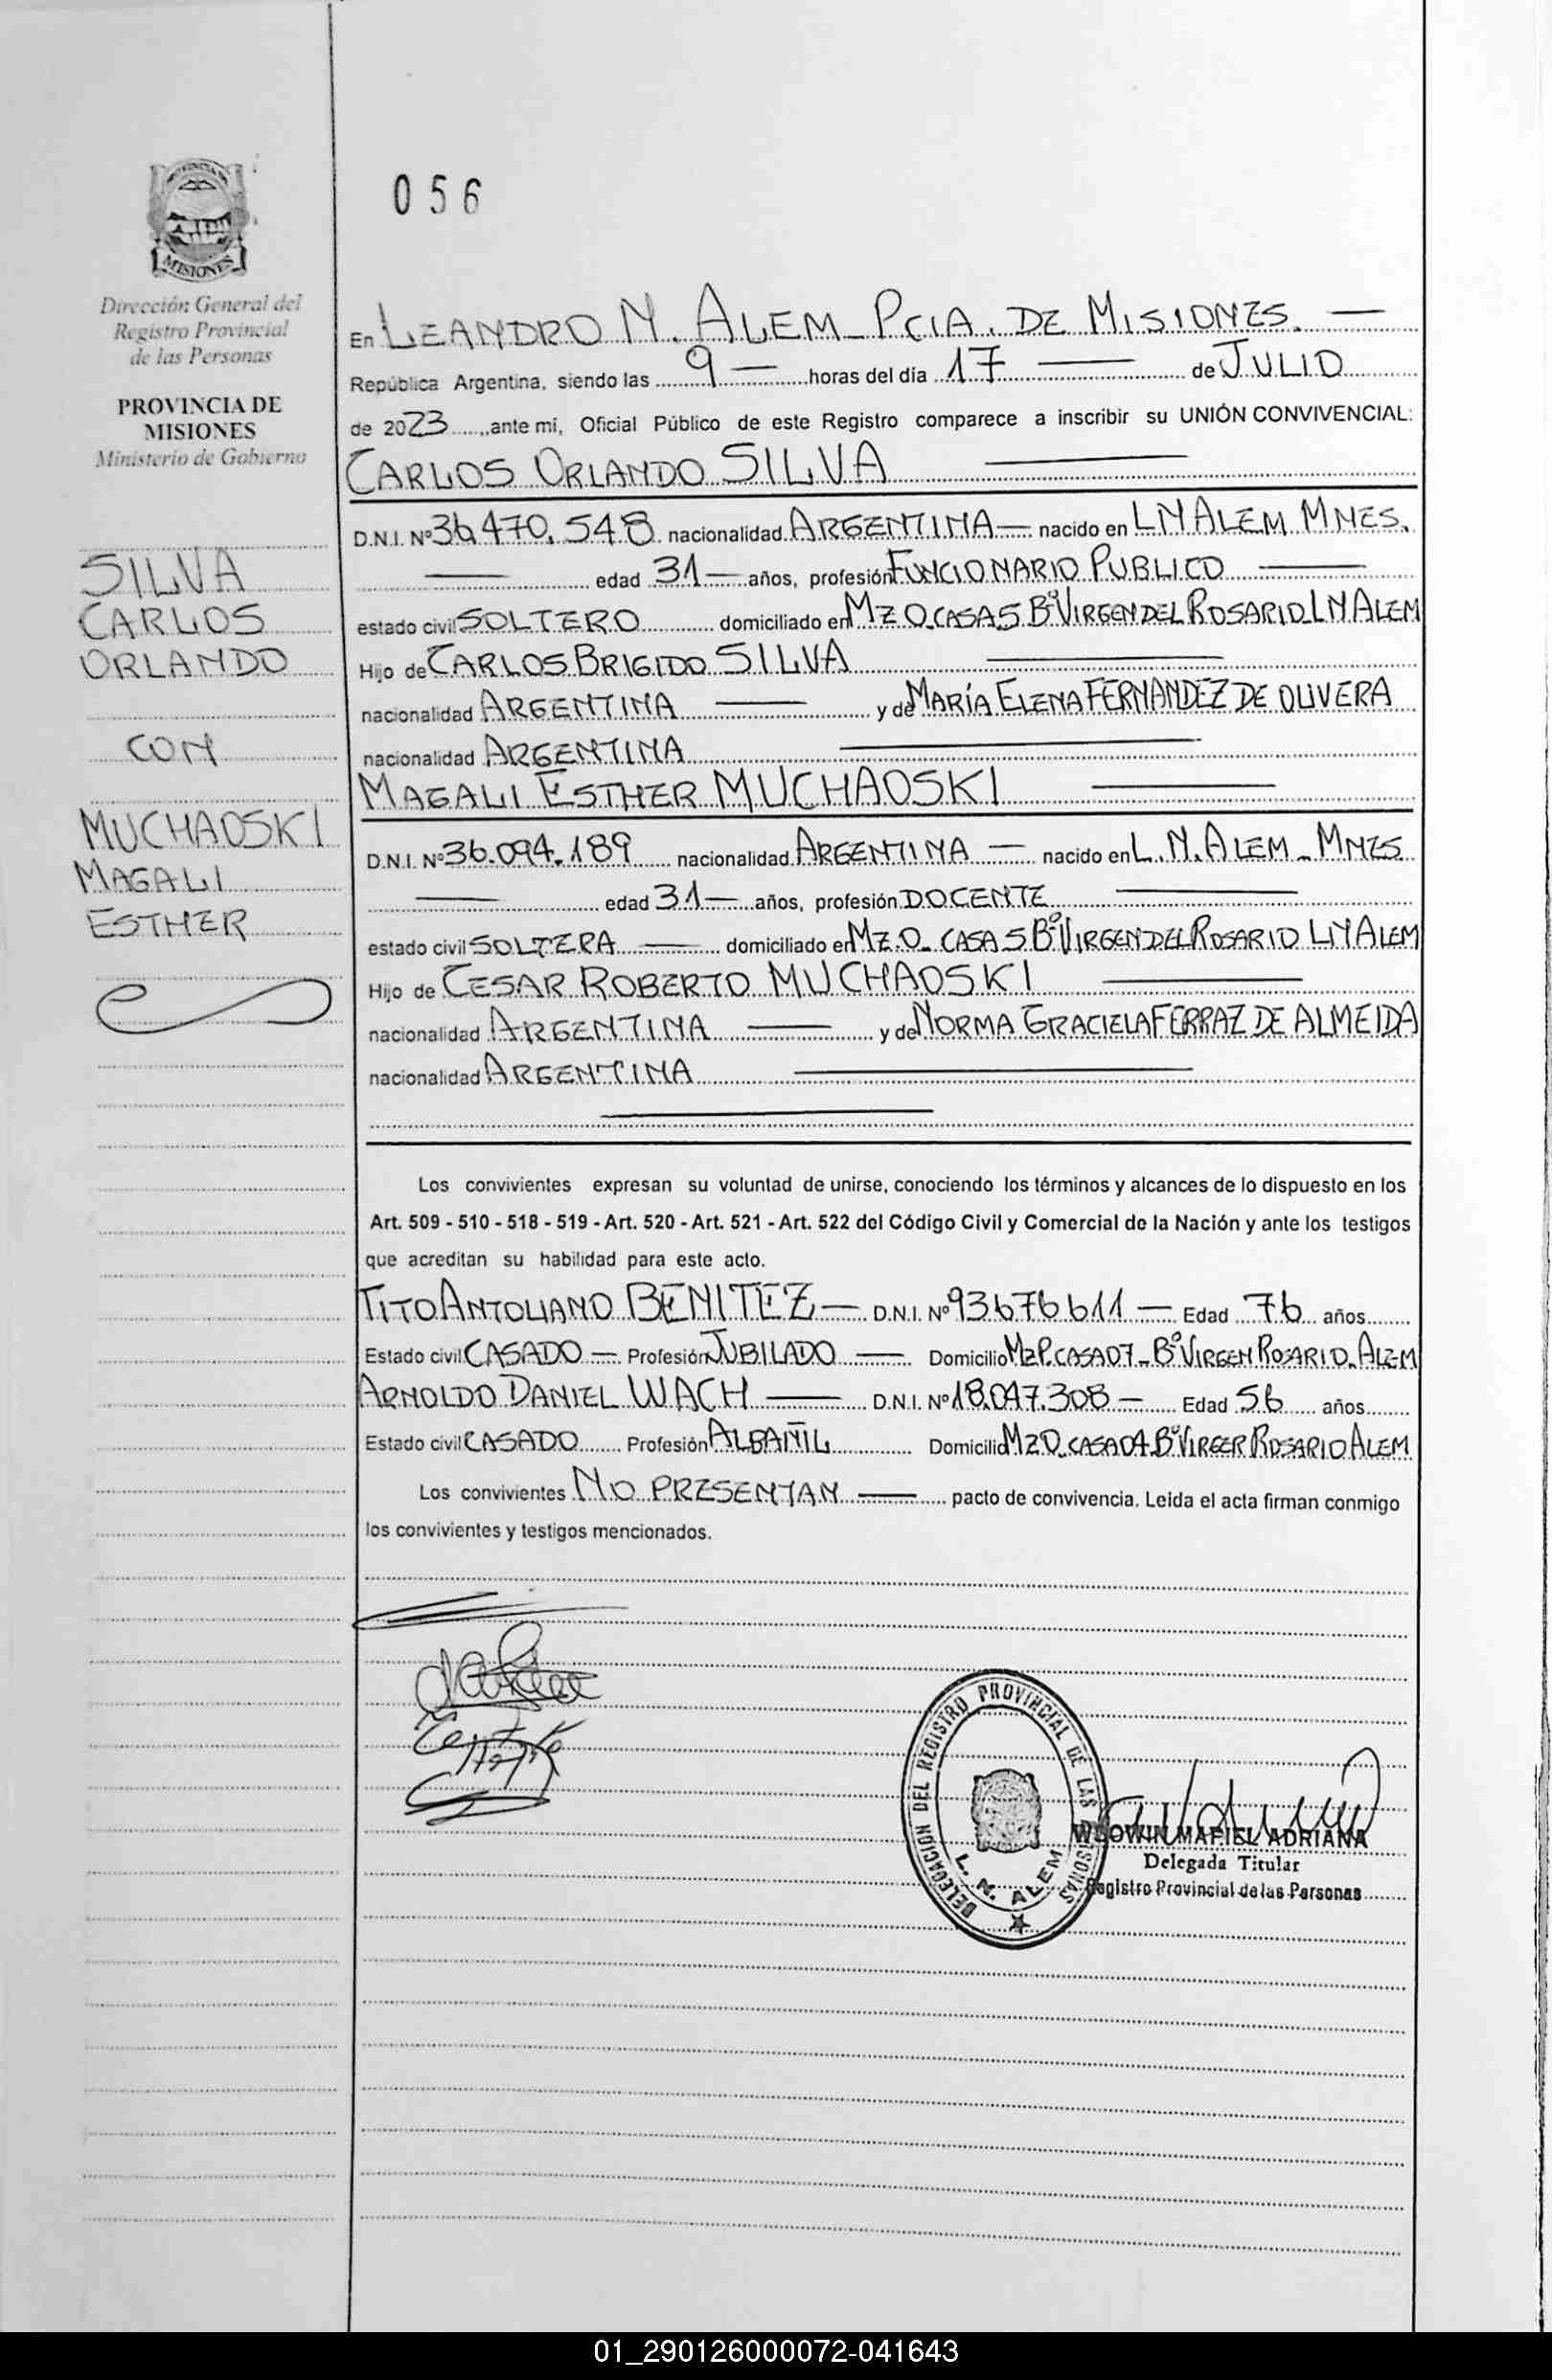 056
MISIONES
Dirección General del
Registro Provincial
de las Personas
PROVINCIA DE
MISIONES
Ministerio de Gobierno
SILVA
CARLOS
ORLANDO
CON
MUCHAOSKI
MAGALI
ESTHER
En LEANDRO N. ALEM - PCIA. DE MISIONES. —
República Argentina, siendo las 9 — horas del día 17 — de JULIO
de 2023 ante mi, Oficial Público de este Registro comparece a inscribir su UNIÓN CONVIVENCIAL:
CARLOS ORLANDO SILVA —
D.N.I. Nº 36.470.548 nacionalidad ARGENTINA — nacido en LN ALEM MNES.
— edad 31 — años, profesión FUNCIONARIO PUBLICO —
estado civil SOLTERO domiciliado en MZ O CASA 5 Bº VIRGEN DEL ROSARIO LN ALEM
Hijo de CARLOS BRIGIDO SILVA —
nacionalidad ARGENTINA — y de MARÍA ELENA FERNANDEZ DE OLIVERA
nacionalidad ARGENTINA —
MAGALI ESTHER MUCHAOSKI —
D.N.I. Nº 36.094.189 nacionalidad ARGENTINA — nacido en L. N. ALEM - MNES
— edad 31 — años, profesión DOCENTE —
estado civil SOLTERA — domiciliado en MZ O - CASA 5 Bº VIRGEN DEL ROSARIO LN ALEM
Hijo de CESAR ROBERTO MUCHAOSKI —
nacionalidad ARGENTINA — y de NORMA GRACIELA FERRAZ DE ALMEIDA
nacionalidad ARGENTINA —
Los convivientes expresan su voluntad de unirse, conociendo los términos y alcances de lo dispuesto en los
Art. 509 - 510 - 518 - 519 - Art. 520 - Art. 521 - Art. 522 del Código Civil y Comercial de la Nación y ante los testigos
que acreditan su habilidad para este acto.
TITO ANTOLIANO BENITEZ — D.N.I. Nº 93676611 — Edad 76 años
Estado civil CASADO — Profesión JUBILADO — Domicilio MZ P CASA 07 - Bº VIRGEN ROSARIO - ALEM
ARNOLDO DANIEL WACH — D.N.I. Nº 18.047.308 — Edad 56 años
Estado civil CASADO Profesión ALBAÑIL Domicilio MZ O CASA 04 Bº VIRGER ROSARIO ALEM
Los convivientes NO PRESENTAN — pacto de convivencia. Leida el acta firman conmigo
los convivientes y testigos mencionados.
DELEGACION DEL REGISTRO PROVINCIAL DE LAS PERSONAS
L. N. ALEM
MARIEL ADRIANA
Delegada Titular
Registro Provincial de las Personas
01_290126000072-041643